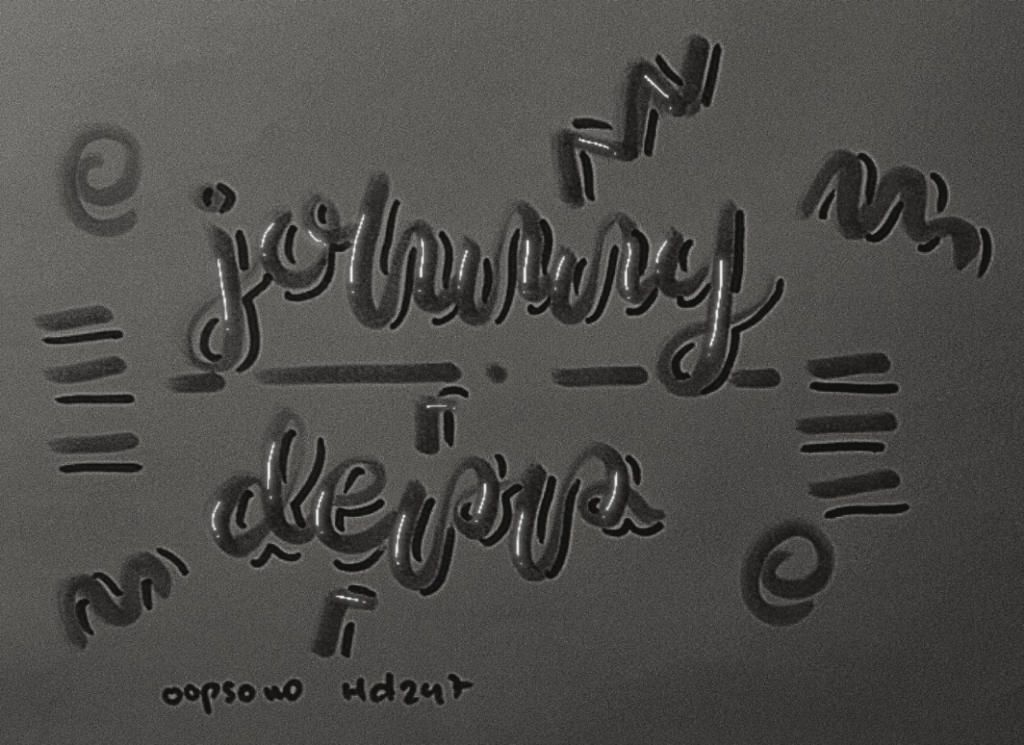 johnny
depp
oopsowo Hd247